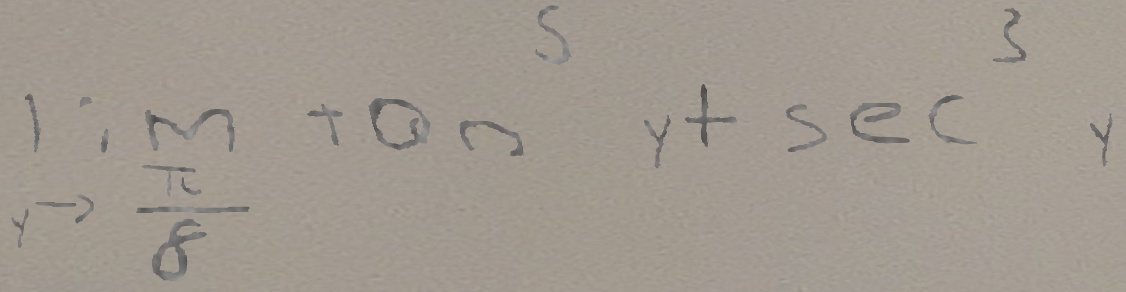 \lim_{y \to \frac{\pi}{8}} \tan^5 y + \sec^3 y